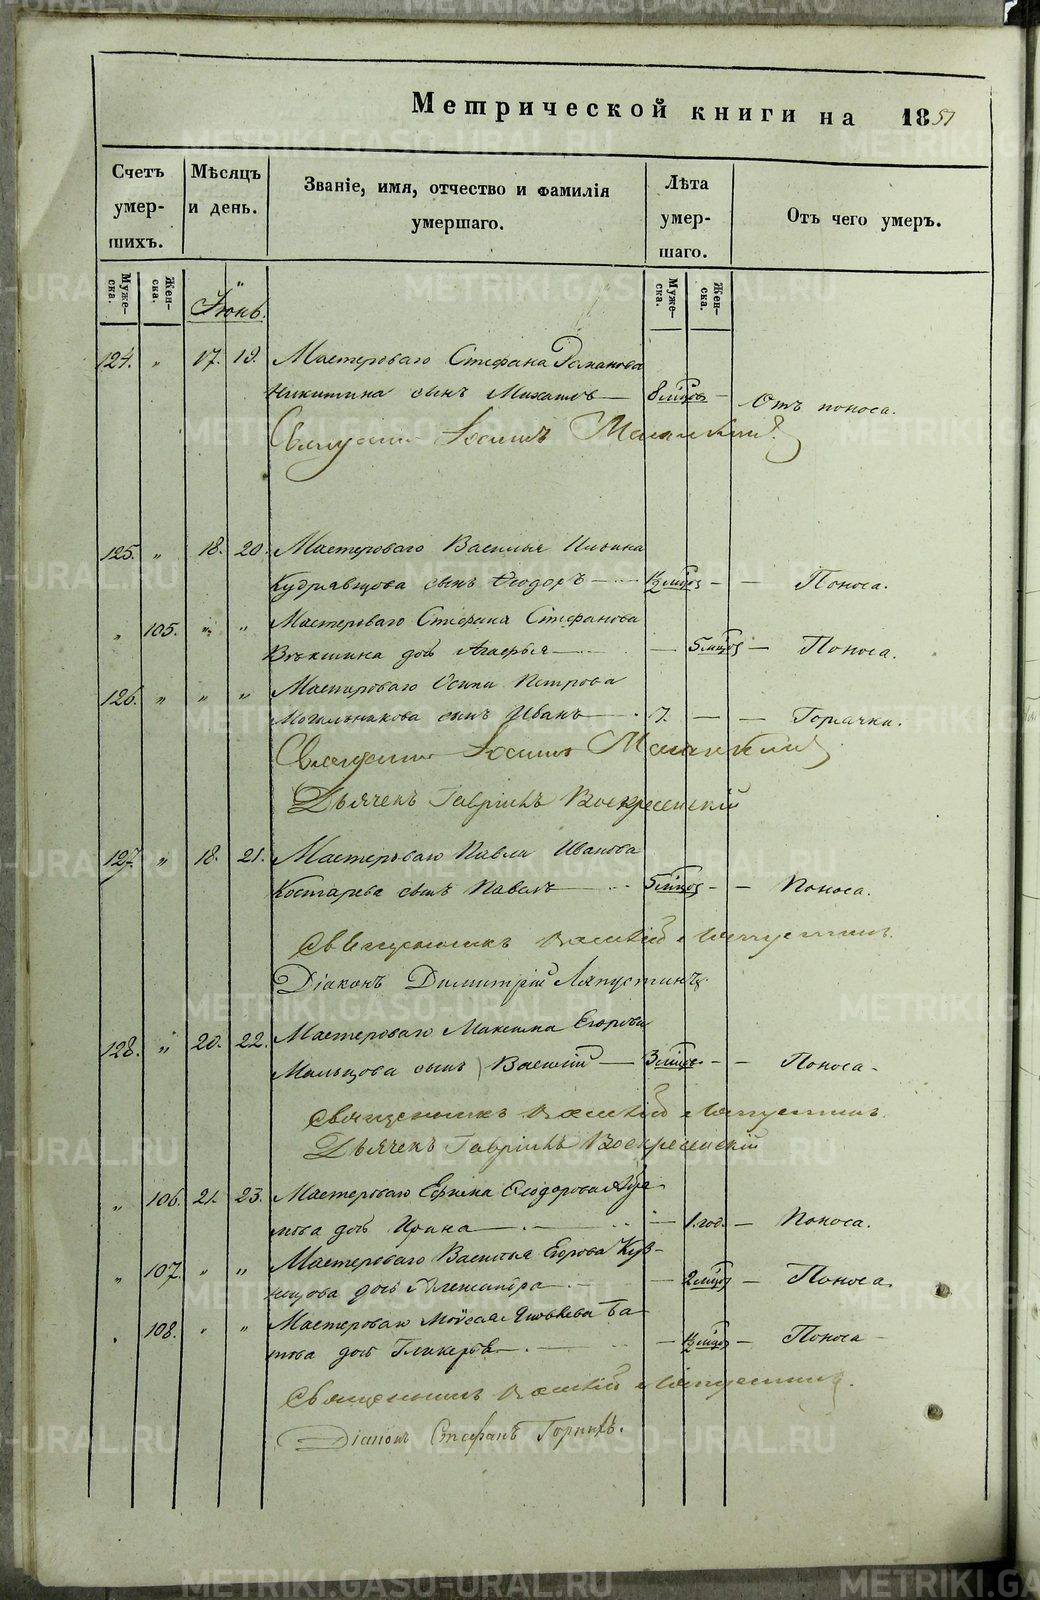 METRIKI.GASO-URAL.RU
Метрической книги на 1851
Счетъ умер- шихъ.
Мѣсяцъ и день.
Званіе, имя, отчество и фамилія умершаго.
Лѣта умер- шаго.
Отъ чего умеръ.
Муже- ска.
Жен- ска.
Муже- ска.
Жен- ска.
Іюнь.
124. " 17. 19. Мастероваго Стефана Романова
Никитина сынъ Михаилъ — 8 мцовъ — Отъ поноса.
Священникъ Іоаннъ
125. " 18. 20. Мастероваго Василья Ильина
Кудрявцова сынъ Ѳеодоръ — — — Поноса.
" 105. " " Мастероваго Стефана Стефанова
дочь Агафья — — 5 мцов — Поноса.
126. " " " Мастероваго Осипа Петрова
Могильникова сынъ Иванъ — 7. — — Горячки.
Священникъ Іоаннъ
Дьячекъ Гавріилъ Воскресенскій
127. " 18. 21. Мастероваго Павла Иванова
Костарева сынъ Павелъ — 5 мцов — — Поноса.
Священникъ Василій Ляпустинъ.
Діаконъ Димитрій Ляпустинъ.
128. " 20. 22. Мастероваго Максима Егорова
Мальцова сынъ Василій — 3 мцъ — — Поноса —
Священникъ Василій Ляпустинъ.
Дьячекъ Гавріилъ Воскресенскій
" 106. 21. 23. Мастероваго Ефима Ѳеодорова
дочь Ирина — — 1. год. — Поноса.
" 107. " " Мастероваго Василья Егорова Куз-
нецова дочь Александра — — 2 мцов — Поноса.
" 108. " " Мастероваго Мойсея Яковлева Ба-
това дочь Гликерія — — — Поноса —
Священникъ Василій Ляпустинъ.
Діаконъ Стефанъ